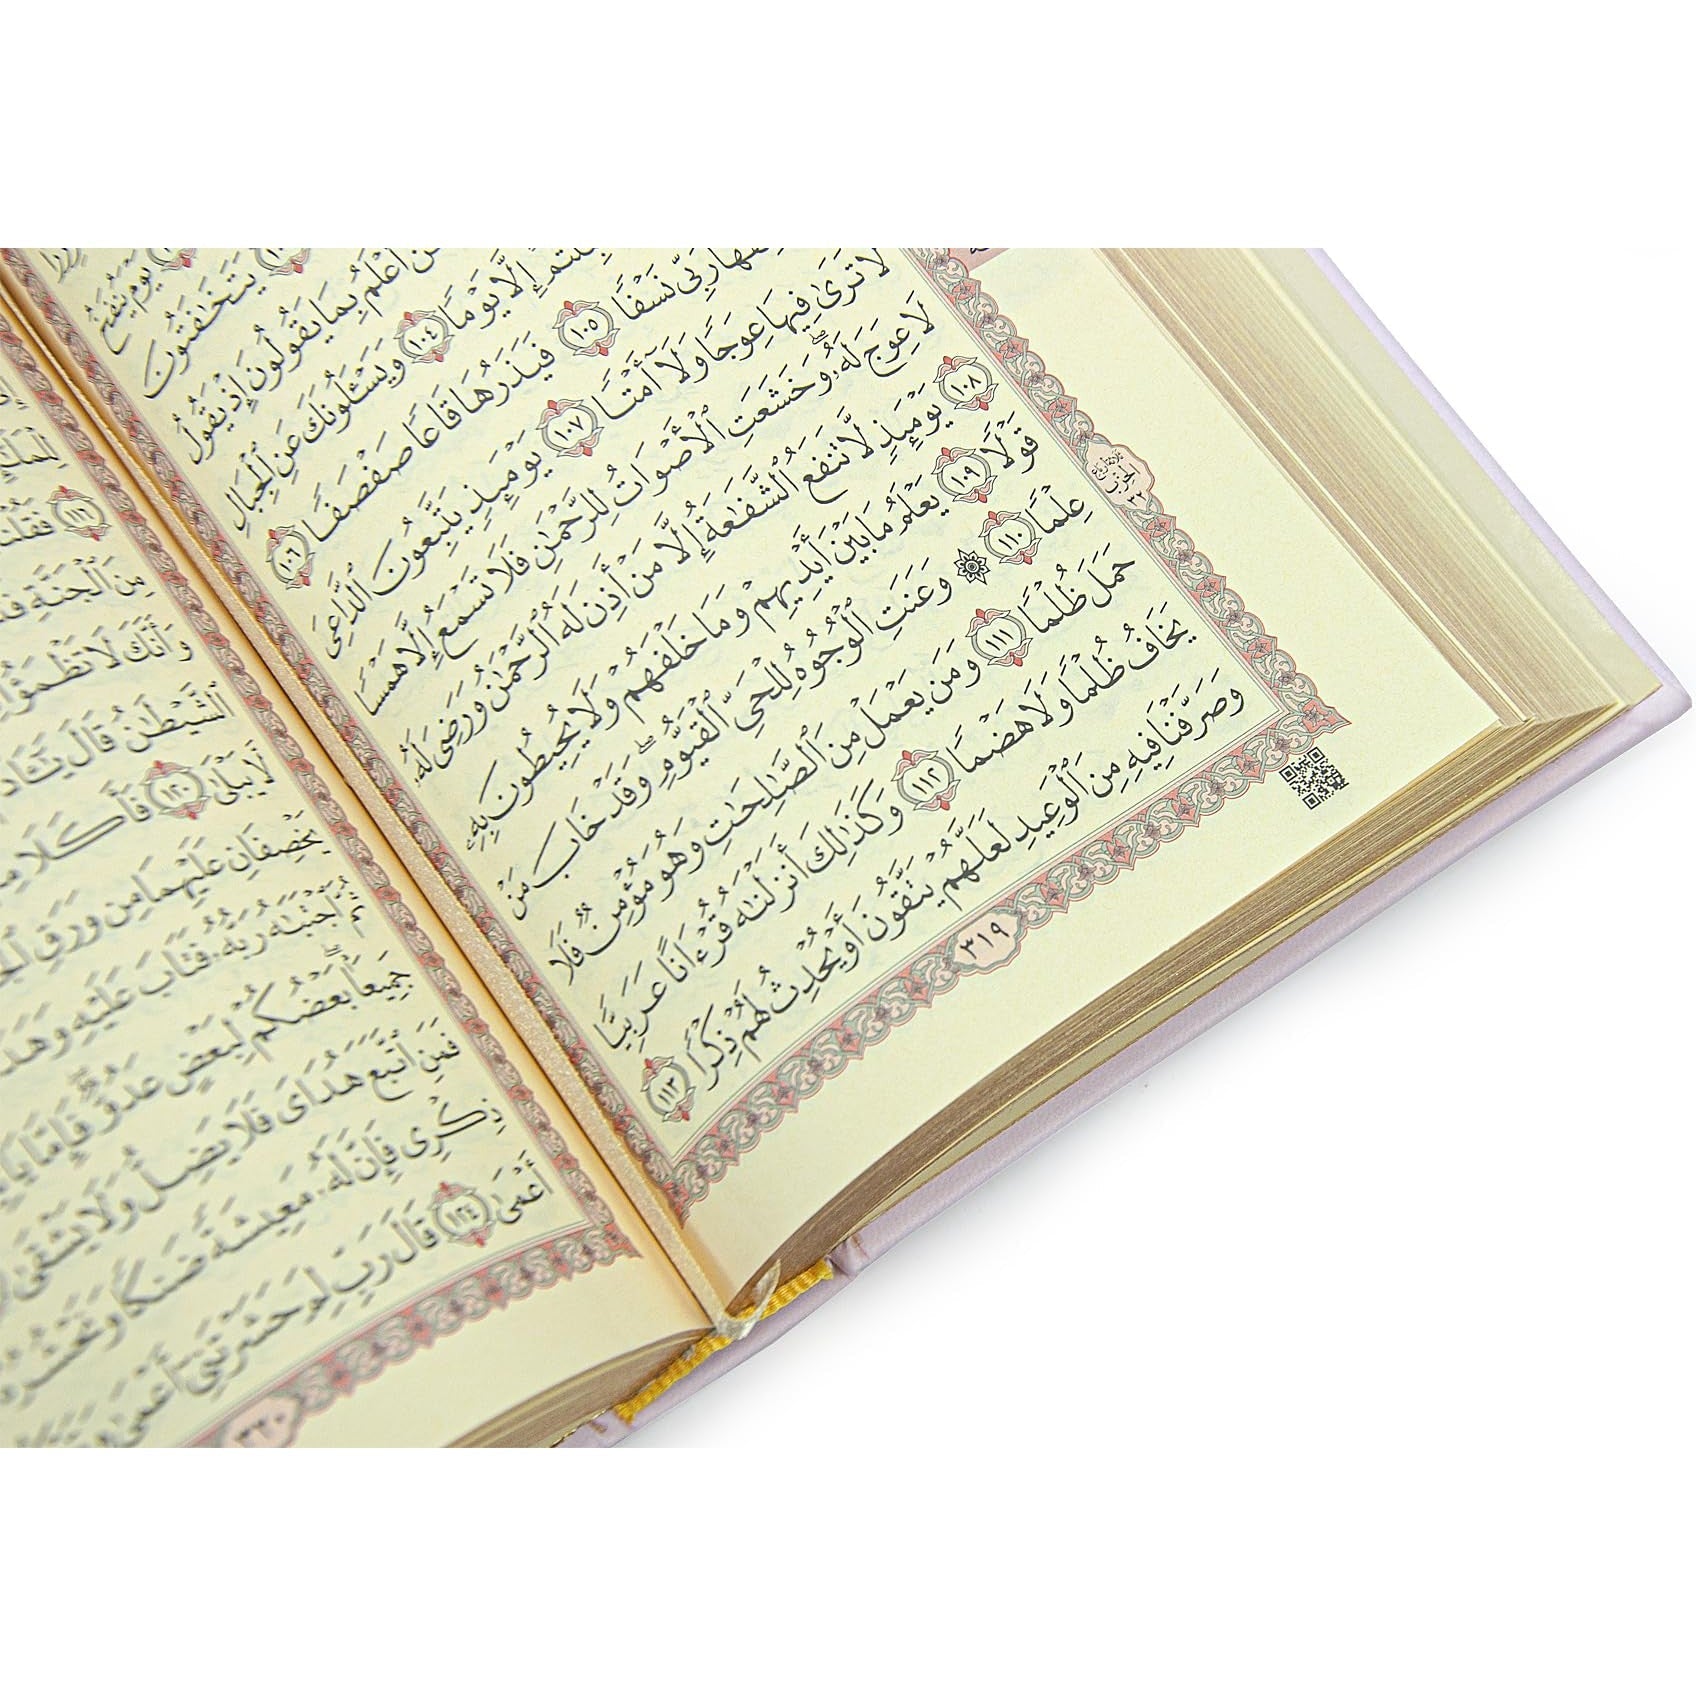 يَوْمَ يُنفَخُ
يَتَخَٰفَتُونَ
أَعْلَمُ بِمَا يَقُولُونَ إِذْ يَقُولُ
إِلَّا يَوْمًا ١٠٤ وَيَسْـَٔلُونَكَ عَنِ ٱلْجِبَالِ
رَبِّى نَسْفًا ١٠٥ فَيَذَرُهَا قَاعًا صَفْصَفًا ١٠٦
لَّا تَرَىٰ فِيهَا عِوَجًا وَلَآ أَمْتًا ١٠٧ يَوْمَئِذٍ يَتَّبِعُونَ ٱلدَّاعِىَ
لَا عِوَجَ لَهُۥ ۖ وَخَشَعَتِ ٱلْأَصْوَاتُ لِلرَّحْمَٰنِ فَلَا تَسْمَعُ إِلَّا هَمْسًا
١٠٨ يَوْمَئِذٍ لَّا تَنفَعُ ٱلشَّفَٰعَةُ إِلَّا مَنْ أَذِنَ لَهُ ٱلرَّحْمَٰنُ وَرَضِىَ لَهُۥ
قَوْلًا ١٠٩ يَعْلَمُ مَا بَيْنَ أَيْدِيهِمْ وَمَا خَلْفَهُمْ وَلَا يُحِيطُونَ بِهِۦ
عِلْمًا ١١٠ ۞ وَعَنَتِ ٱلْوُجُوهُ لِلْحَىِّ ٱلْقَيُّومِ ۖ وَقَدْ خَابَ مَنْ
حَمَلَ ظُلْمًا ١١١ وَمَن يَعْمَلْ مِنَ ٱلصَّٰلِحَٰتِ وَهُوَ مُؤْمِنٌ فَلَا
يَخَافُ ظُلْمًا وَلَا هَضْمًا ١١٢ وَكَذَٰلِكَ أَنزَلْنَٰهُ قُرْءَانًا عَرَبِيًّا
وَصَرَّفْنَا فِيهِ مِنَ ٱلْوَعِيدِ لَعَلَّهُمْ يَتَّقُونَ أَوْ يُحْدِثُ لَهُمْ ذِكْرًا ١١٣
ثلاثة أرباع
الحزب
٣٢
٣١٩
١١٦ فَقُلْنَا
مِنَ ٱلْجَنَّةِ
وَأَنَّكَ لَا تَظْمَؤُا۟
ٱلشَّيْطَٰنُ قَالَ
لَّا يَبْلَىٰ ١٢٠ فَأَكَلَا
يَخْصِفَانِ عَلَيْهِمَا مِن وَرَقِ
ثُمَّ ٱجْتَبَٰهُ رَبُّهُۥ فَتَابَ عَلَيْهِ
جَمِيعًۢا ۖ بَعْضُكُمْ لِبَعْضٍ عَدُوٌّ ۖ فَإِمَّا
فَمَنِ ٱتَّبَعَ هُدَاىَ فَلَا يَضِلُّ وَلَا يَشْقَىٰ
ذِكْرِى فَإِنَّ لَهُۥ مَعِيشَةً ضَنكًا
أَعْمَىٰ ١٢٤ قَالَ رَبِّ لِمَ حَشَرْتَنِىٓ أَعْمَىٰ
٣٢٠